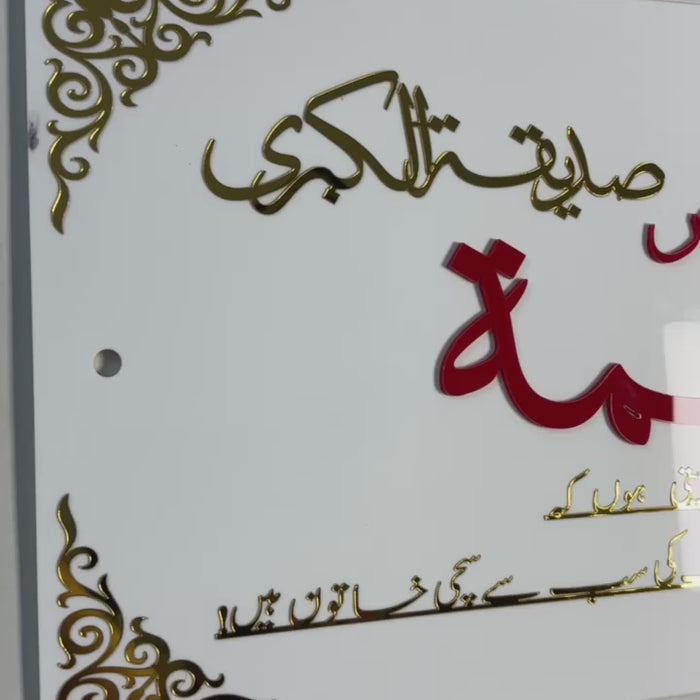 صدیقۃ الکبری
مۃ
ہوں کہ
کی سب سے سچی خاتون ہیں!